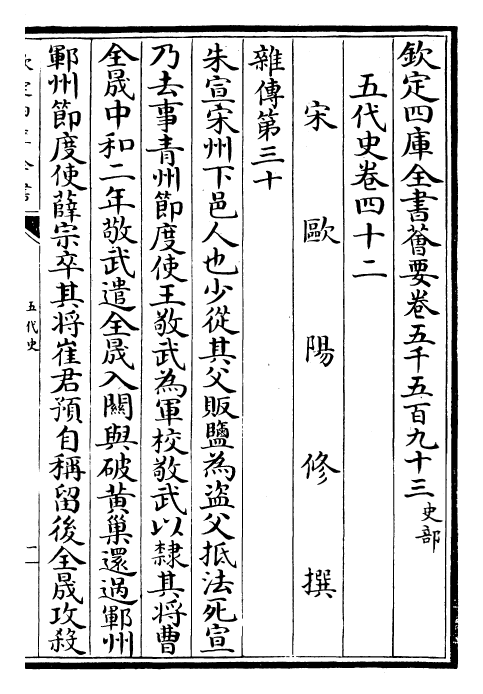 欽定四庫全書薈要卷五千五百九十三 史部
五代史卷四十二
宋 歐 陽 修 撰
雜傳第三十
朱宣宋州下邑人也少從其父販鹽為盜父抵法死宣
乃去事青州節度使王敬武為軍校敬武以隸其將曹
全晟中和二年敬武遣全晟入關與破黃巢還過鄆州
鄆州節度使薛宗卒其將崔君預自稱留後全晟攻殺
五代史
一